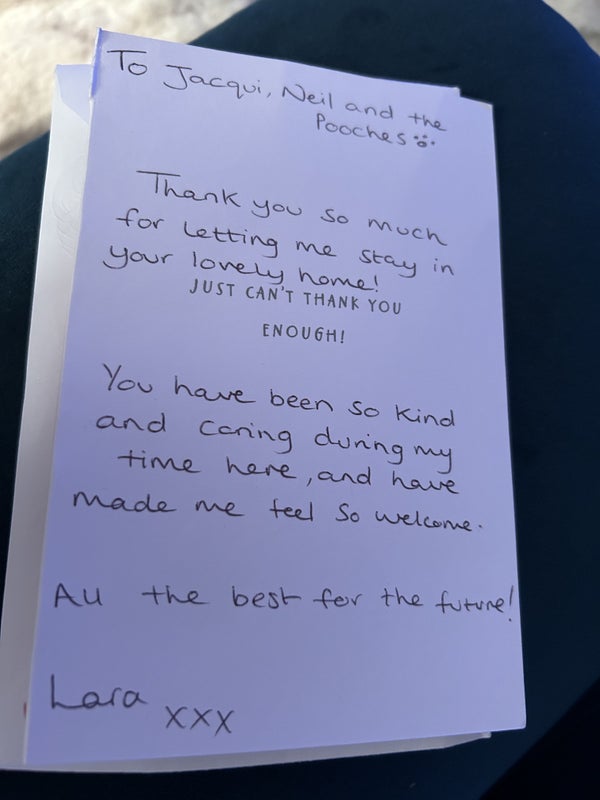 To Jacqui, Neil and the
Pooches
Thank you so much
for letting me stay in
your lovely home!
JUST CAN'T THANK YOU
ENOUGH!
You have been so kind
and caring during my
time here, and have
made me feel so welcome.
All the best for the future!
Lara xxx